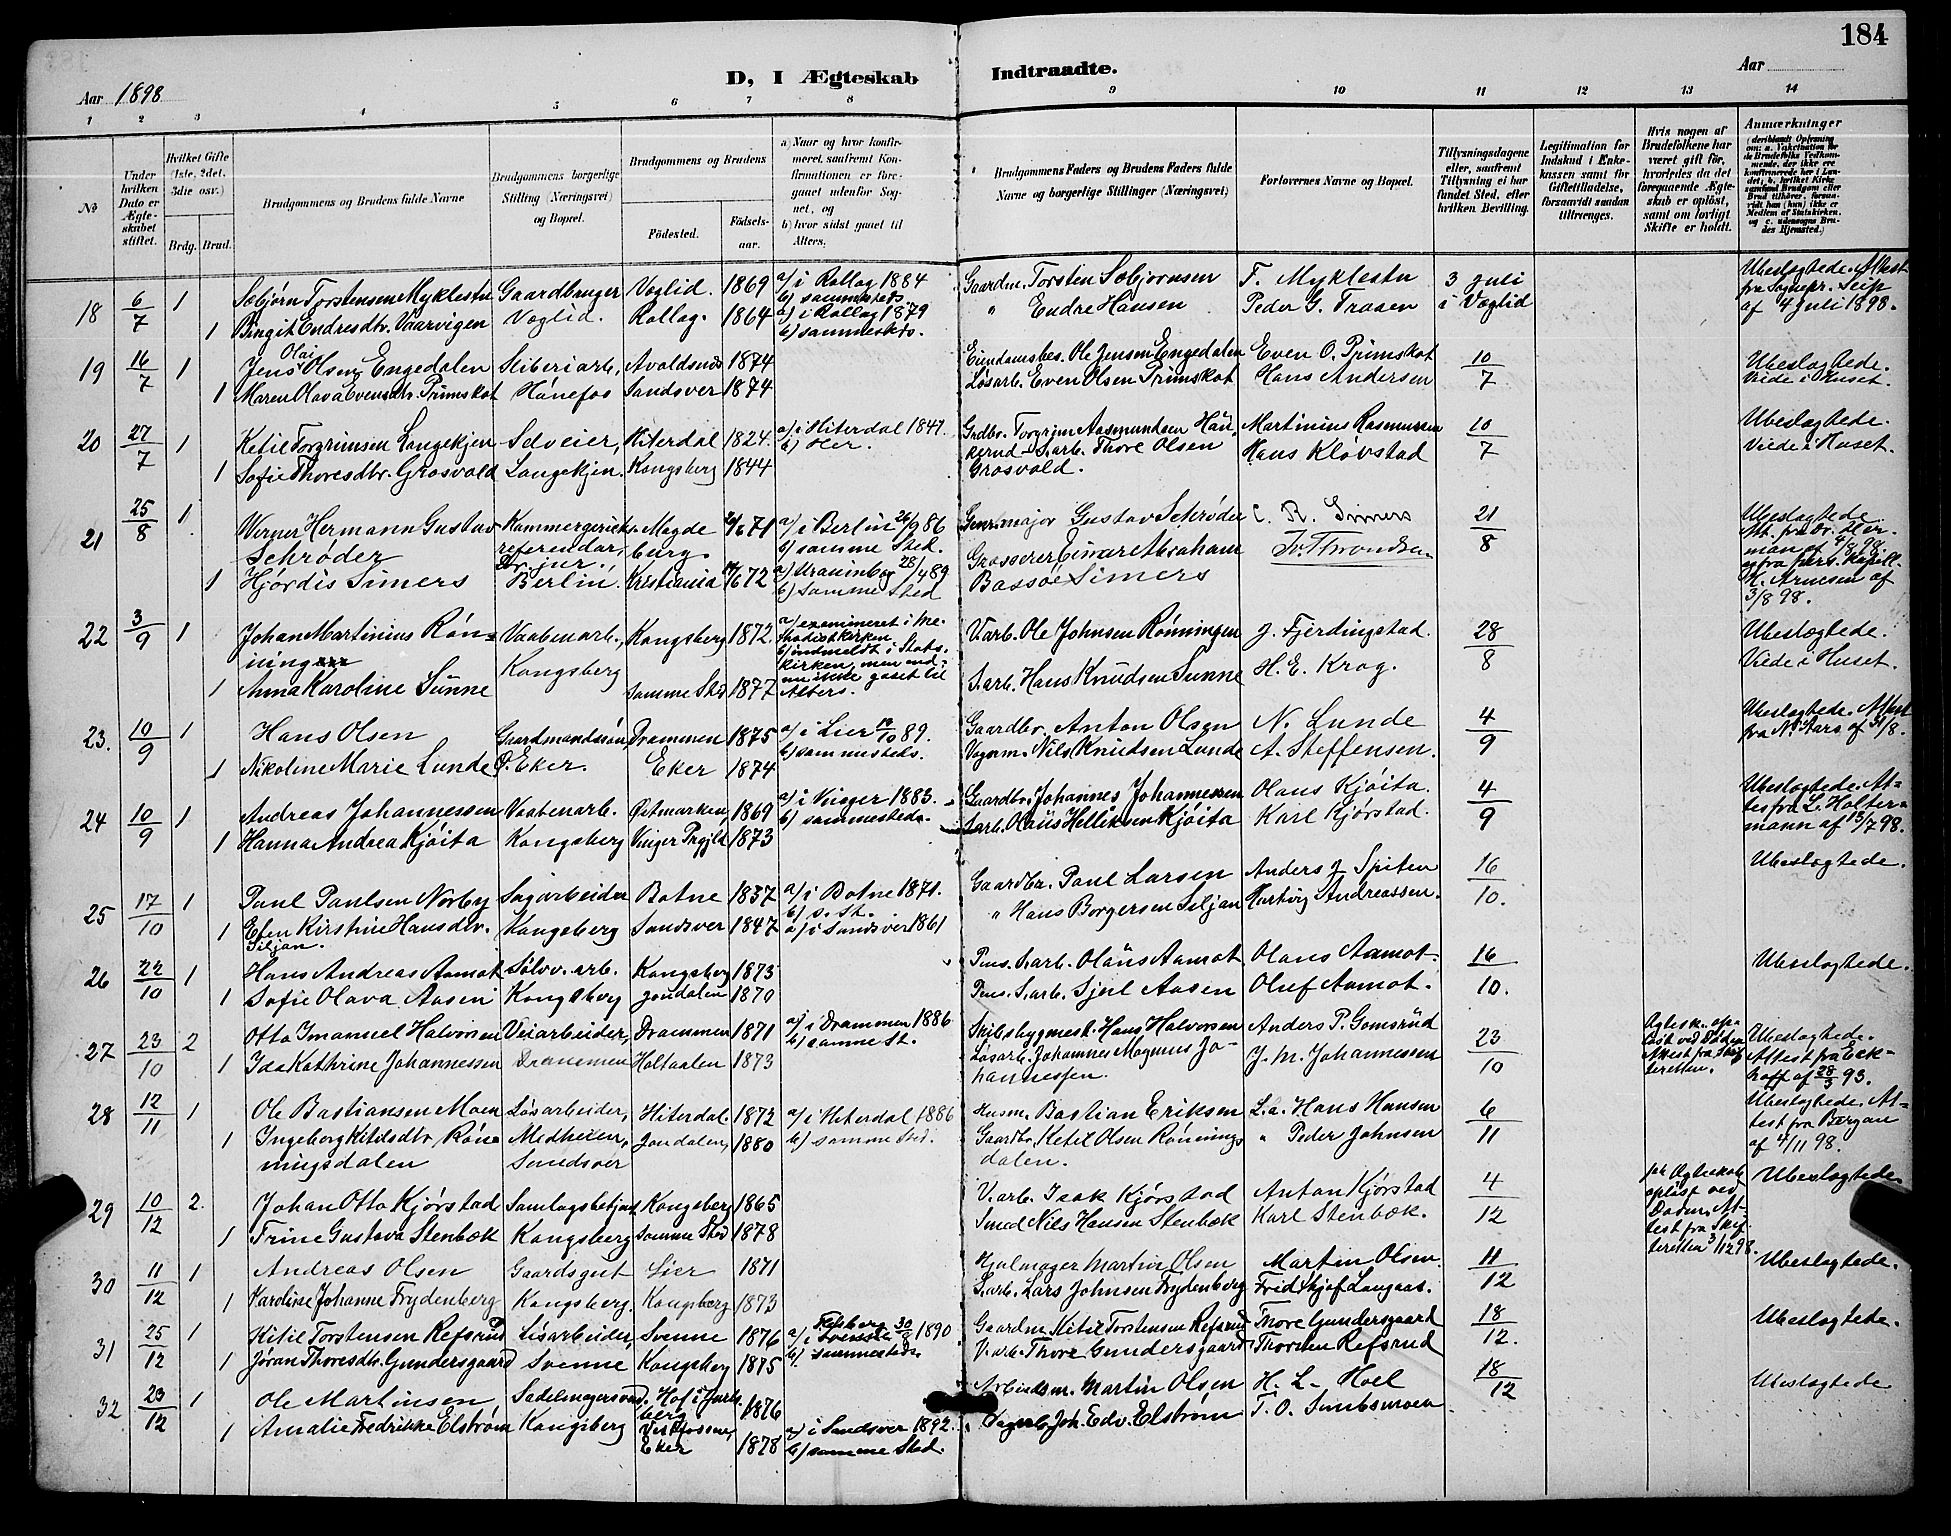 184
D, I Ægteskab Indtraadte.
Aar 1898
Aar
1 2 3 4 5 6 7 8 9 10 11 12 13 14
No
Under hvilken Dato er Ægteskabet stiftet.
Hvilket Gifte (1ste, 2det, 3die osv.)
Brdg. Brud.
Brudgommens og Brudens fulde Navne
Brudgommens borgerlige Stilling (Næringsvei) og Bopæl.
Brudgommens og Brudens
Fødested.
Fødselsaar.
a) Naar og hvor konfirmeret, saafremt Konfirmationen er foregaaet udenfor Sognet, og
b) hvor sidst gaaet til Alters.
Brudgommens Faders og Brudens Faders fulde Navne og borgerlige Stillinger (Næringsvei)
Forlovernes Navne og Bopæl.
Tillysningsdagene eller, saafremt Tillysning ei har fundet Sted, efter hvilken Bevilling.
Legitimation for Indskud i Enkekassen samt for Giftetilladelse, forsaavidt saadan tiltrænges.
Hvis nogen af Brudefolkene har været gift før, hvorledes da det foregaaende Ægteskab er opløst, samt om lovligt Skifte er holdt.
Anmærkninger
18 6/7 1 Sebjørn Torstensen Myklestu Gaardbruger Veglid. 1869 a/ i Rollag 1884 b/ sammesteds. Gaardm. Torsten Sebjørnsen T. Myklestu 3 Juli i Veglid Ubeslægtede. Attest fra Sognepr. Seip af 4 Juli 1898.
1 Birgit Endresdtr. Vaarvigen Veglid. Rollag. 1864 a/ i Rollag 1879 b/ sammesteds. " Endre Hansen Peder G. Traaen
19 16/7 1 Jens Olai Olsen Engedalen Sliberiarb., Avaldsnes 1874 Eiendomsbes. Ole Jensen Engedalen Even O. Primskot 10/7 Ubeslægtede. Viede i Huset.
1 Maren Olava Evensdtr. Primskot Hønefos Sandsver 1874 Løsarb. Even Olsen Primskot Hans Andersen
20 27/7 1 Ketil Torgrimsen Langekjen Selveier, Hiterdal 1824. a/ i Hiterdal 1841. b/ Her. Grdbr. Torgrim Aasmundsen Haukerud Martinius Rasmussen 10/7 Ubeslægtede. Viede i Huset.
1 Sofie Thoresdtr. Grosvold Langekjen. Kongsberg 1844 S.arb. Thore Olsen Grosvold. Hans Kløvstad
21 25/8 1 Werner Hermann Gustav Schrøder Kammergericktsreferendar, Dr. jur., Berlin Magdeburg. 71 a/ i Berlin 86 b/ samme Sted. Genr.major Gustav Schrøder C. R. Simers 21/8 Ubeslægtede.
1 Hjørdis Simers Kristiania 72 a/ Uranienborg 28/4 89 b/ Samme Sted Grosserer Einar Abraham Bassøe Simers
22 3/9 1 Johan Martinius Rønning Vaabenarb., Kongsberg Kongsberg 1872. a/ examineret i Methodistkirken b/ indmeldt i Statskirken, men endnu ikke gaaet til Alters. V.arb. Ole Johnsen Rønningen J. Fjerdingstad. 28/8 Ubeslægtede. Viede i Huset.
1 Anna Karoline Sunne Samme Sted 1877 S.arb. Hans Knudsen Sunne H. E. Krog.
23. 10/9 1 Hans Olsen Gaardmandssøn Drammen 1875 a/ i Lier 89. b/ sammesteds. Gaardbr. Anton Olsen N. Lunde 4/9 Ubeslægtede. Attest fra N. Aars af 31/8.
1 Nikoline Marie Lunde Ø. Eker. Eker 1874 Vognm. Nils Knudsen Lunde A. Steffensen.
24 10/9 1 Andreas Johannessen Vaabenarb. Østmarken, 1869 a/ i Vinger 1883. b/ sammesteds. Gaardbr. Johannes Johannessen Olaus Kjøita 4/9 Ubeslægtede. Attest fra L. Holtermann af 13/7 98.
1 Hanna Andrea Kjøita Kongsberg Vinger Prgjld 1873 S.arb. Olaus Helliksen Kjøita Karl Kjørstad.
25 17/10 1 Paul Paulsen Norby Sagarbeider Botne 1837 a/ i Botne 1871. b/ s. St. Gaardbr. Paul Larsen Anders J. Spiten 16/10. Ubeslægtede.
1 Elen Kirstine Hansdtr. Siljan. Kongsberg Sandsver 1847 a/ i Sandsver 1861 " Hans Borgersen Siljan Hartvig Andreassen.
26 22/10 1 Hans Andreas Aamot Sølvv. arb. Kongsberg 1873 Pens. S.arb. Olaus Aamot Olaus Aamot. 16/10. Ubeslægtede.
1 Sofie Olava Aasen Kongsberg Jondalen 1870 Pens. S.arb. Sjul Aasen Oluf Aamot.
27 23/10 2 Otto Imanuel Halvorsen Veiarbeider, Drammen 1871 a/ i Drammen 1886 b/ samme St. Skibsbygmest. Hans Halvorsen Anders P. Gomsrud 23/10 Ægtesk. opløst ved Døden. Attest fra Skifteretten. Ubeslægtede. Attest fra Eckhoff af 28/3 93.
1 Ida Kathrine Johannessen Drammen Holtaalen 1873 Løsarb. Johannes Magnus Johannessen. J. M. Johannessen
28 12/11 1 Ole Bastiansen Moen Løsarbeider, Hiterdal 1872 a/ i Hiterdal 1886 b/ samme Sted. Husm. Bastian Eriksen L.a. Hans Hansen 6/11 Ubeslægtede. Attest fra Bergan af 4/11 98.
1 Ingeborg Ketilsdtr. Rønningsdalen Medheien, Sandsver Jondalen, 1880 Gaardbr. Ketil Olsen Rønningsdalen. " Peder Johnsen
29 10/12 2. Johan Otto Kjørstad Samlagsbetjent Kongsberg 1865 V.arb. Isak Kjørstad Anton Kjørstad 4/12 Ægteskab opløst ved Døden. Attest fra Skifteretten 3/12 98. Ubeslægtede.
1 Trine Gustava Stenbæk Kongsberg Samme Sted 1878 Smed Nils Hansen Stenbæk Karl Stenbæk.
30 11/12 1 Andreas Olsen Gaardsgut Lier 1871 Hjulmager Martin Olsen Martin Olsen. 11/12 Ubeslægtede.
1 Karoline Johanne Frydenberg Kongsberg. Kongsberg 1873 S.arb. Lars Johnsen Frydenberg Fridthjof Langaas.
31 25/12 1 Kitil Torstensen Refsrud Løsarbeider, Svenne 1876 a/ i Flesberg 30/8 1890 b/ sammesteds. Gaardm. Kitil Torstensen Refsrud Thore Gundersgaard 18/12. Ubeslægtede.
1 Jøran Thoresdtr. Gundersgaard Svenne Kongsberg 1875 V.arb. Thore Gundersgaard Thorsten Refsrud
32 23/12 1 Ole Martinsen Sadelmagersvend, Hof i Jarlsberg 1876 Arbeidsm. Martin Olsen H. L. Hoel 18/12 Ubeslægtede
1 Amalie Fredrikke Elstrøm Kongsberg Vestfossen, Eker 1878 a/ i Sandsver 1892. b/ samme Sted. Joh. Edv. Elstrøm T. O.